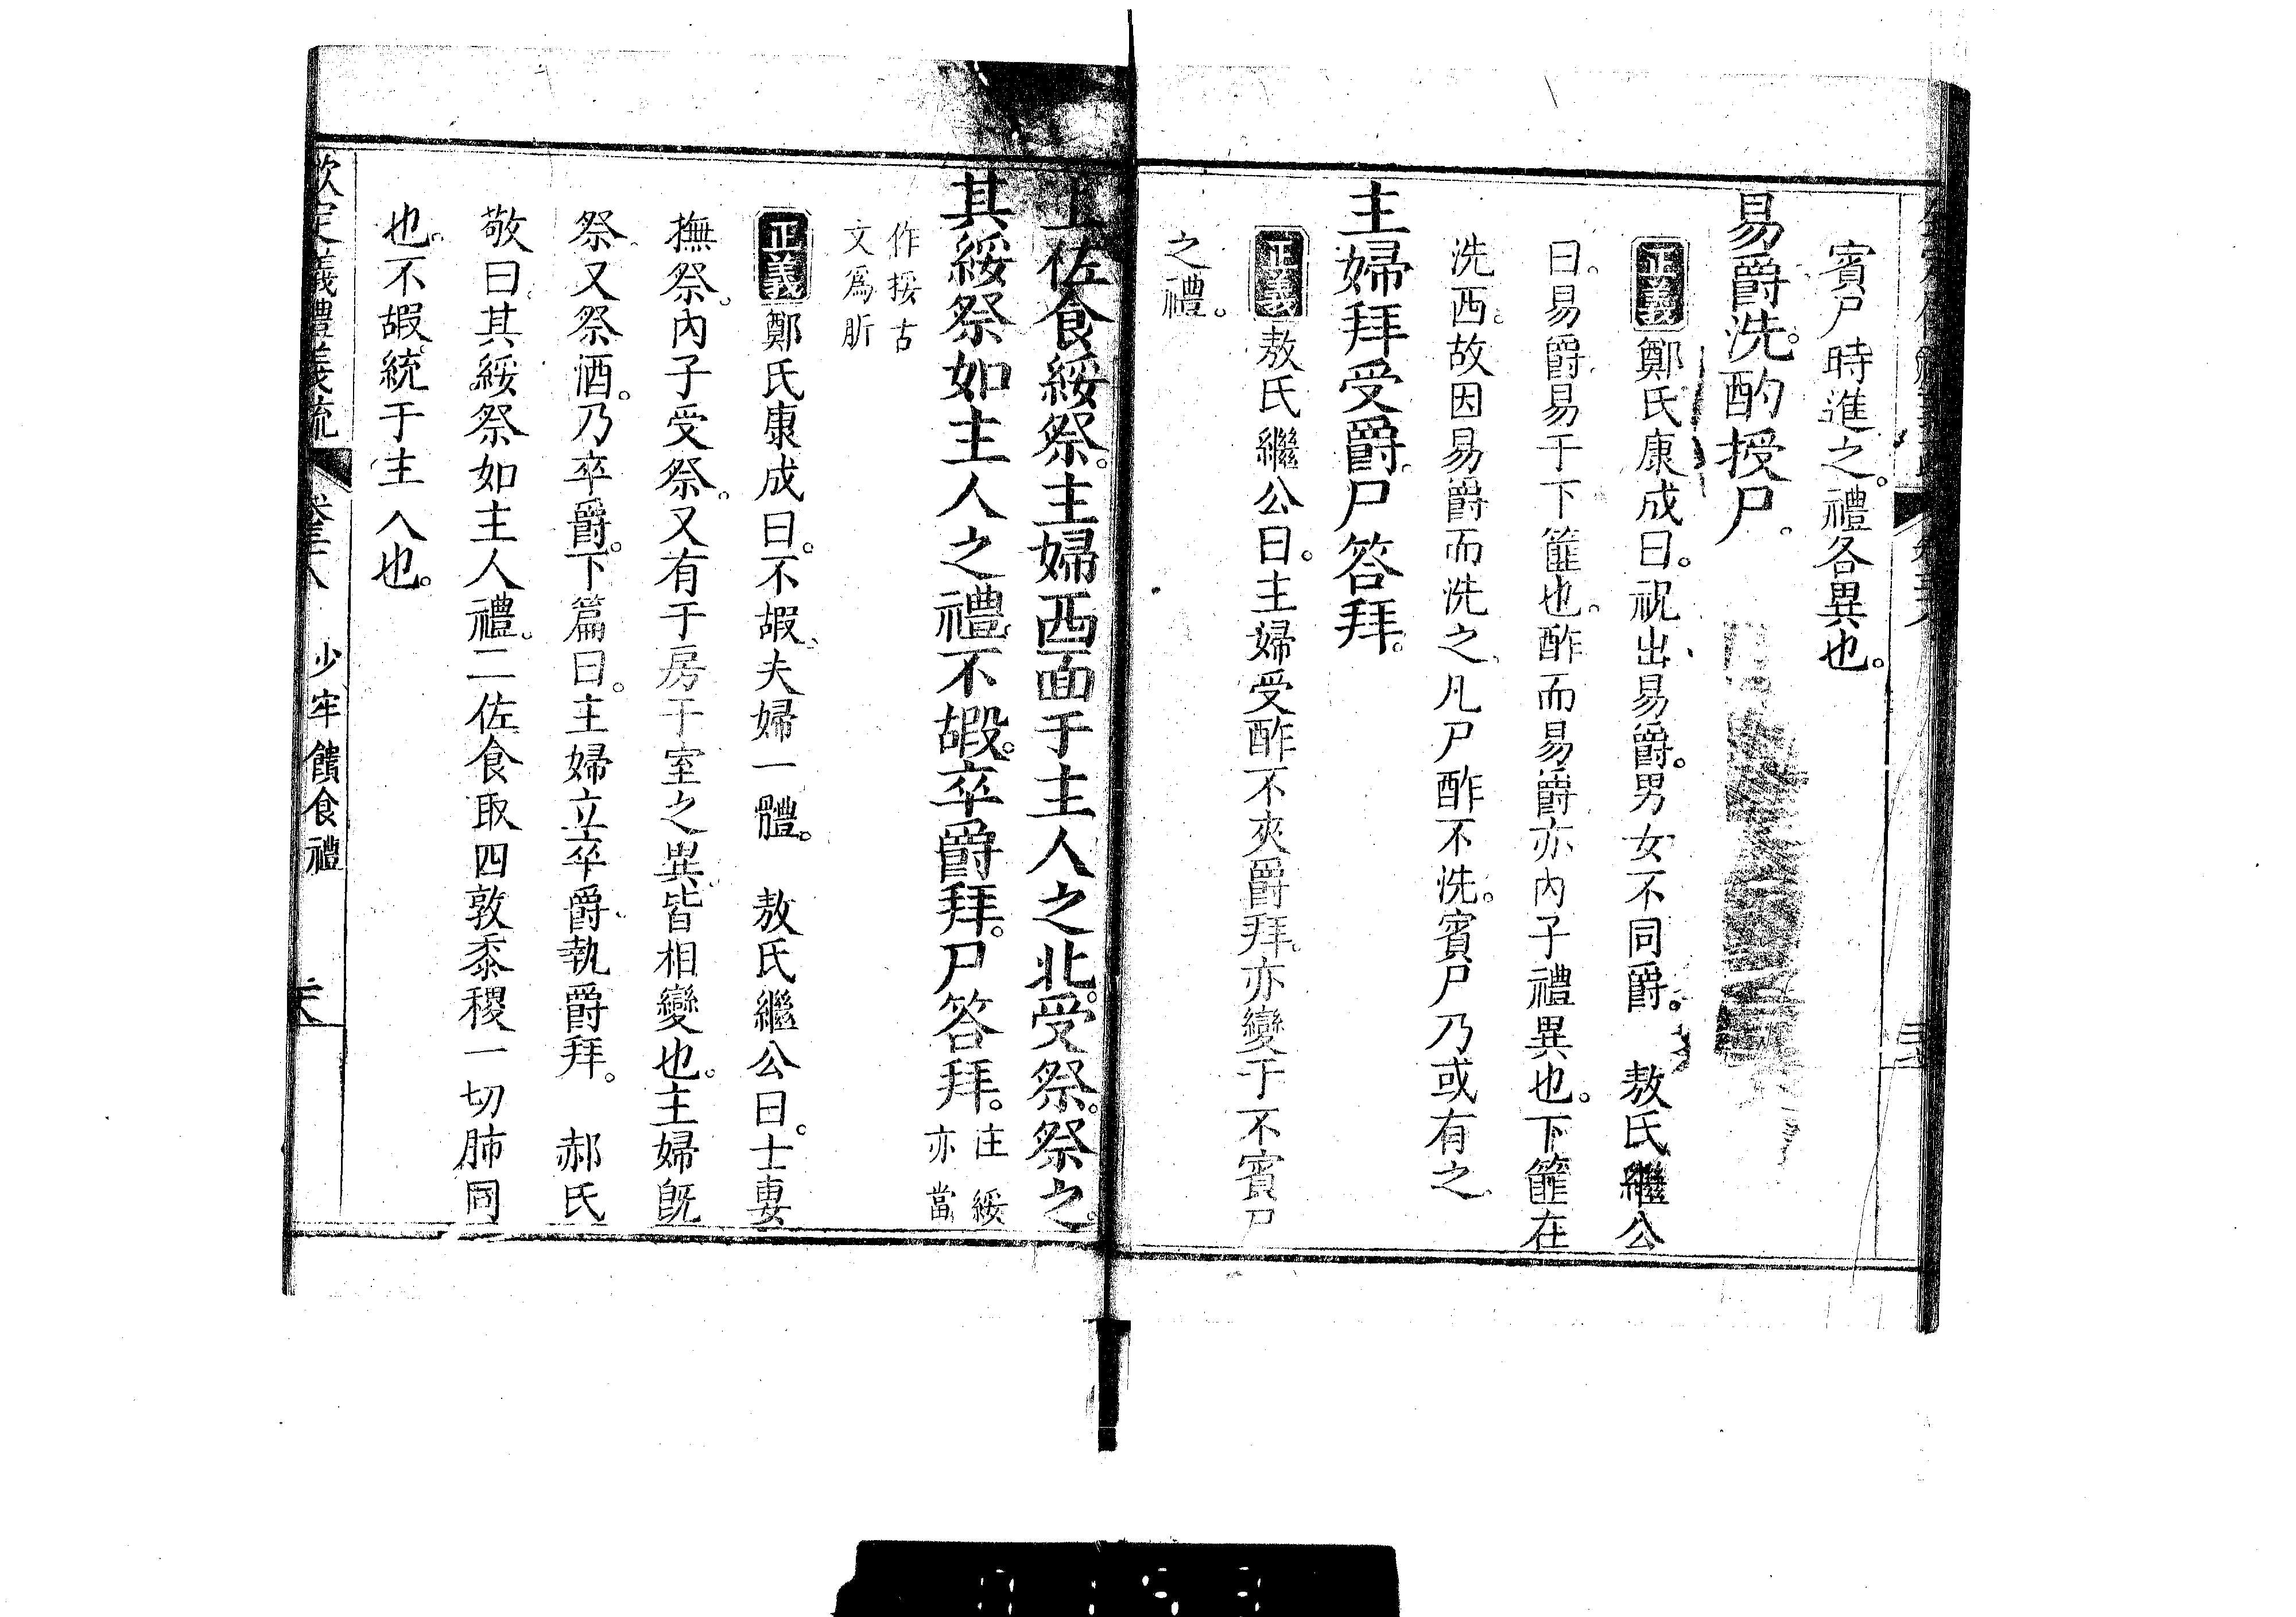 賓尸時進之。禮各異也。
易爵洗。酌授尸。
正義鄭氏康成曰。祝出易爵。男女不同爵。 敖氏繼公
曰。易爵易于下篚也。酢而易爵亦內子禮異也。下篚在
洗西。故因易爵而洗之。凡尸酢不洗。賓尸乃或有之
主婦拜受爵。尸答拜。
正義敖氏繼公曰。主婦受酢不夾爵拜。亦變于不賓尸
之禮。
上佐食綏祭。主婦西面于主人之北。受祭。祭之。
其綏祭如主人之禮。不嘏。卒爵拜。尸答拜。注綏亦當
作挼古文爲㪿
正義鄭氏康成曰。不嘏。夫婦一體。 敖氏繼公曰。士妻
撫祭。內子受祭。又有于房于室之異。皆相變也。主婦既
祭。又祭酒。乃卒爵。下篇曰。主婦立卒爵。執爵拜。 郝氏
敬曰。其綏祭如主人禮。二佐食取四敦黍稷一切肺同
也。不嘏。統于主人也。
欽定義禮義疏 卷三八 少牢饋食禮